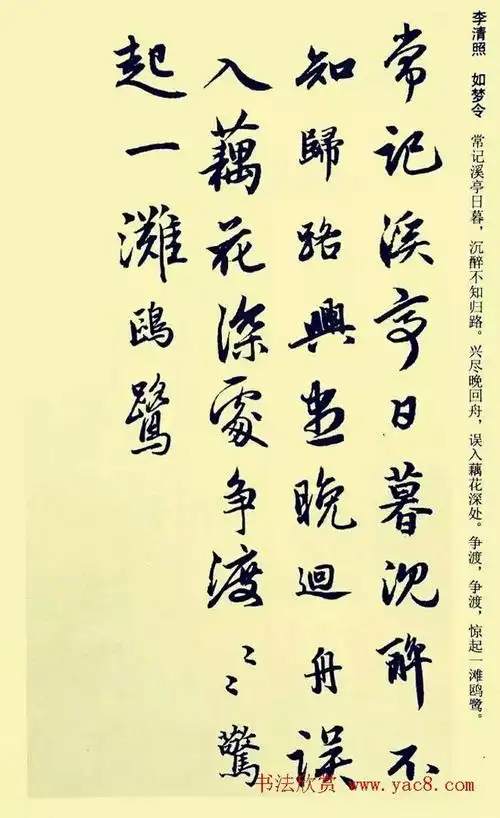 李清照 如梦令 常记溪亭日暮，沉醉不知归路。兴尽晚回舟，误入藕花深处。争渡，争渡，惊起一滩鸥鹭。
常记溪亭日暮沉醉不
知歸路興尽晚迴舟误
入藕花深處争渡〻〻驚
起一灘鷗鷺
书法欣赏 www.yac8.com